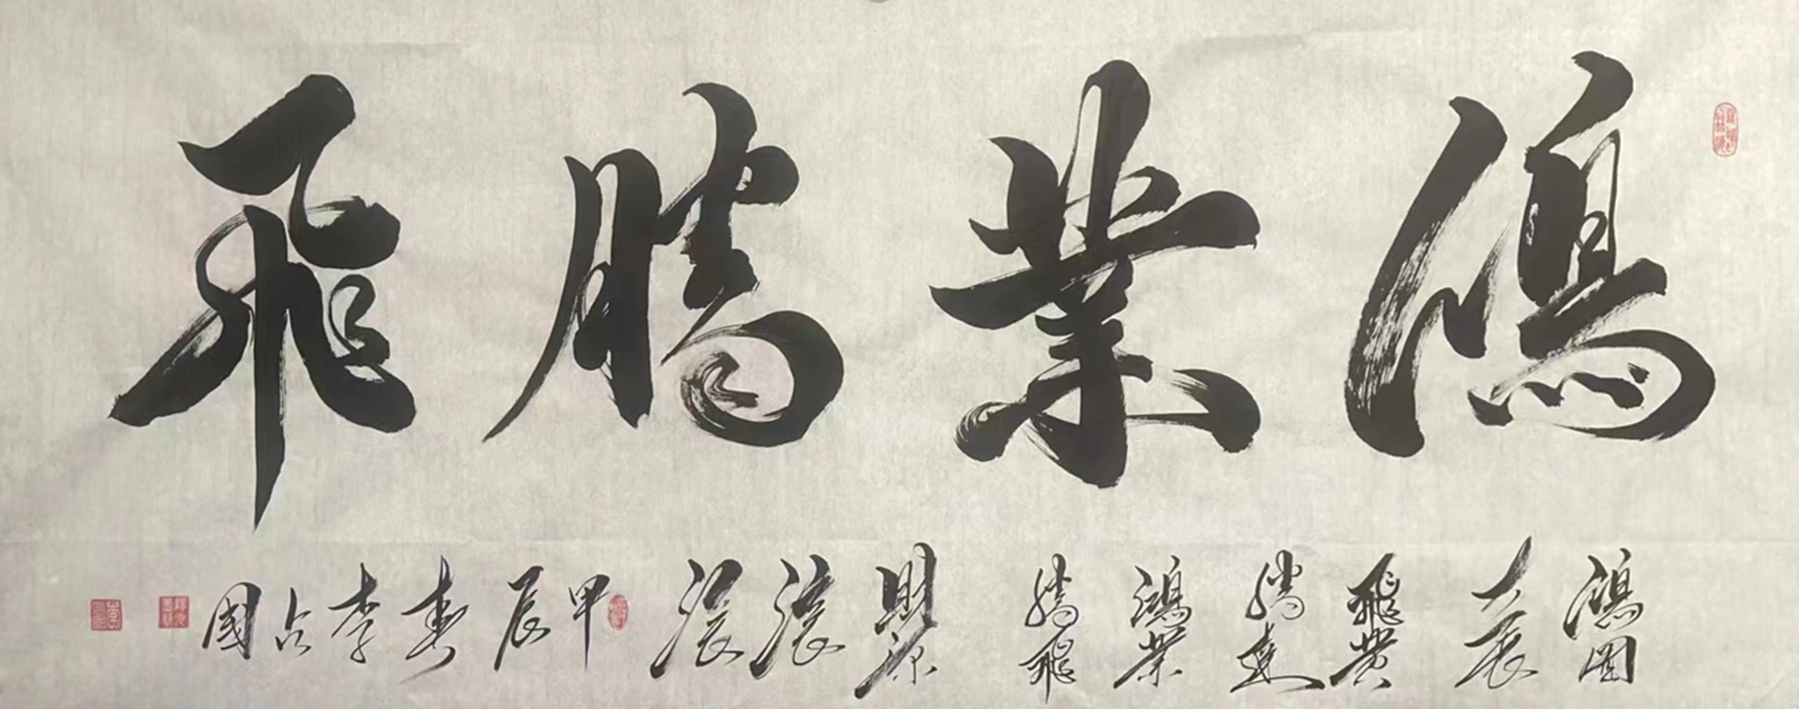 鴻業騰飛
鴻圖大展飛黄騰達鴻業騰飛財源滚滚甲辰春李占國